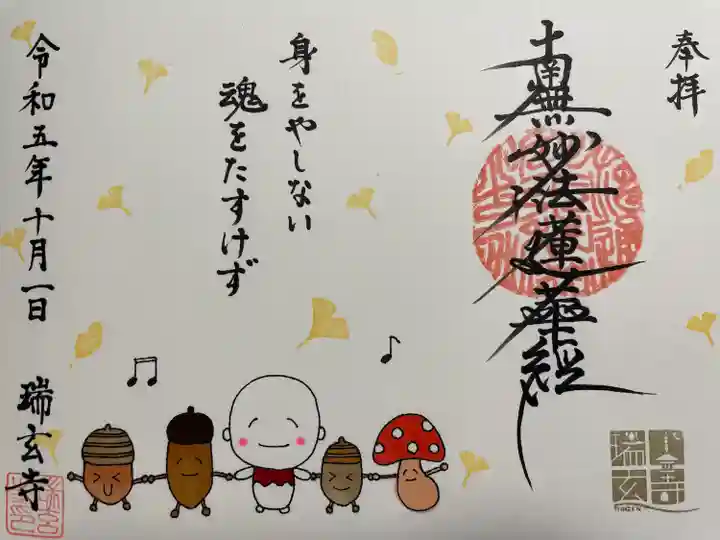 奉拝
南無妙法蓮華経
身をやしない
魂をたすけず
令和五年十月一日 瑞玄寺
瑞玄